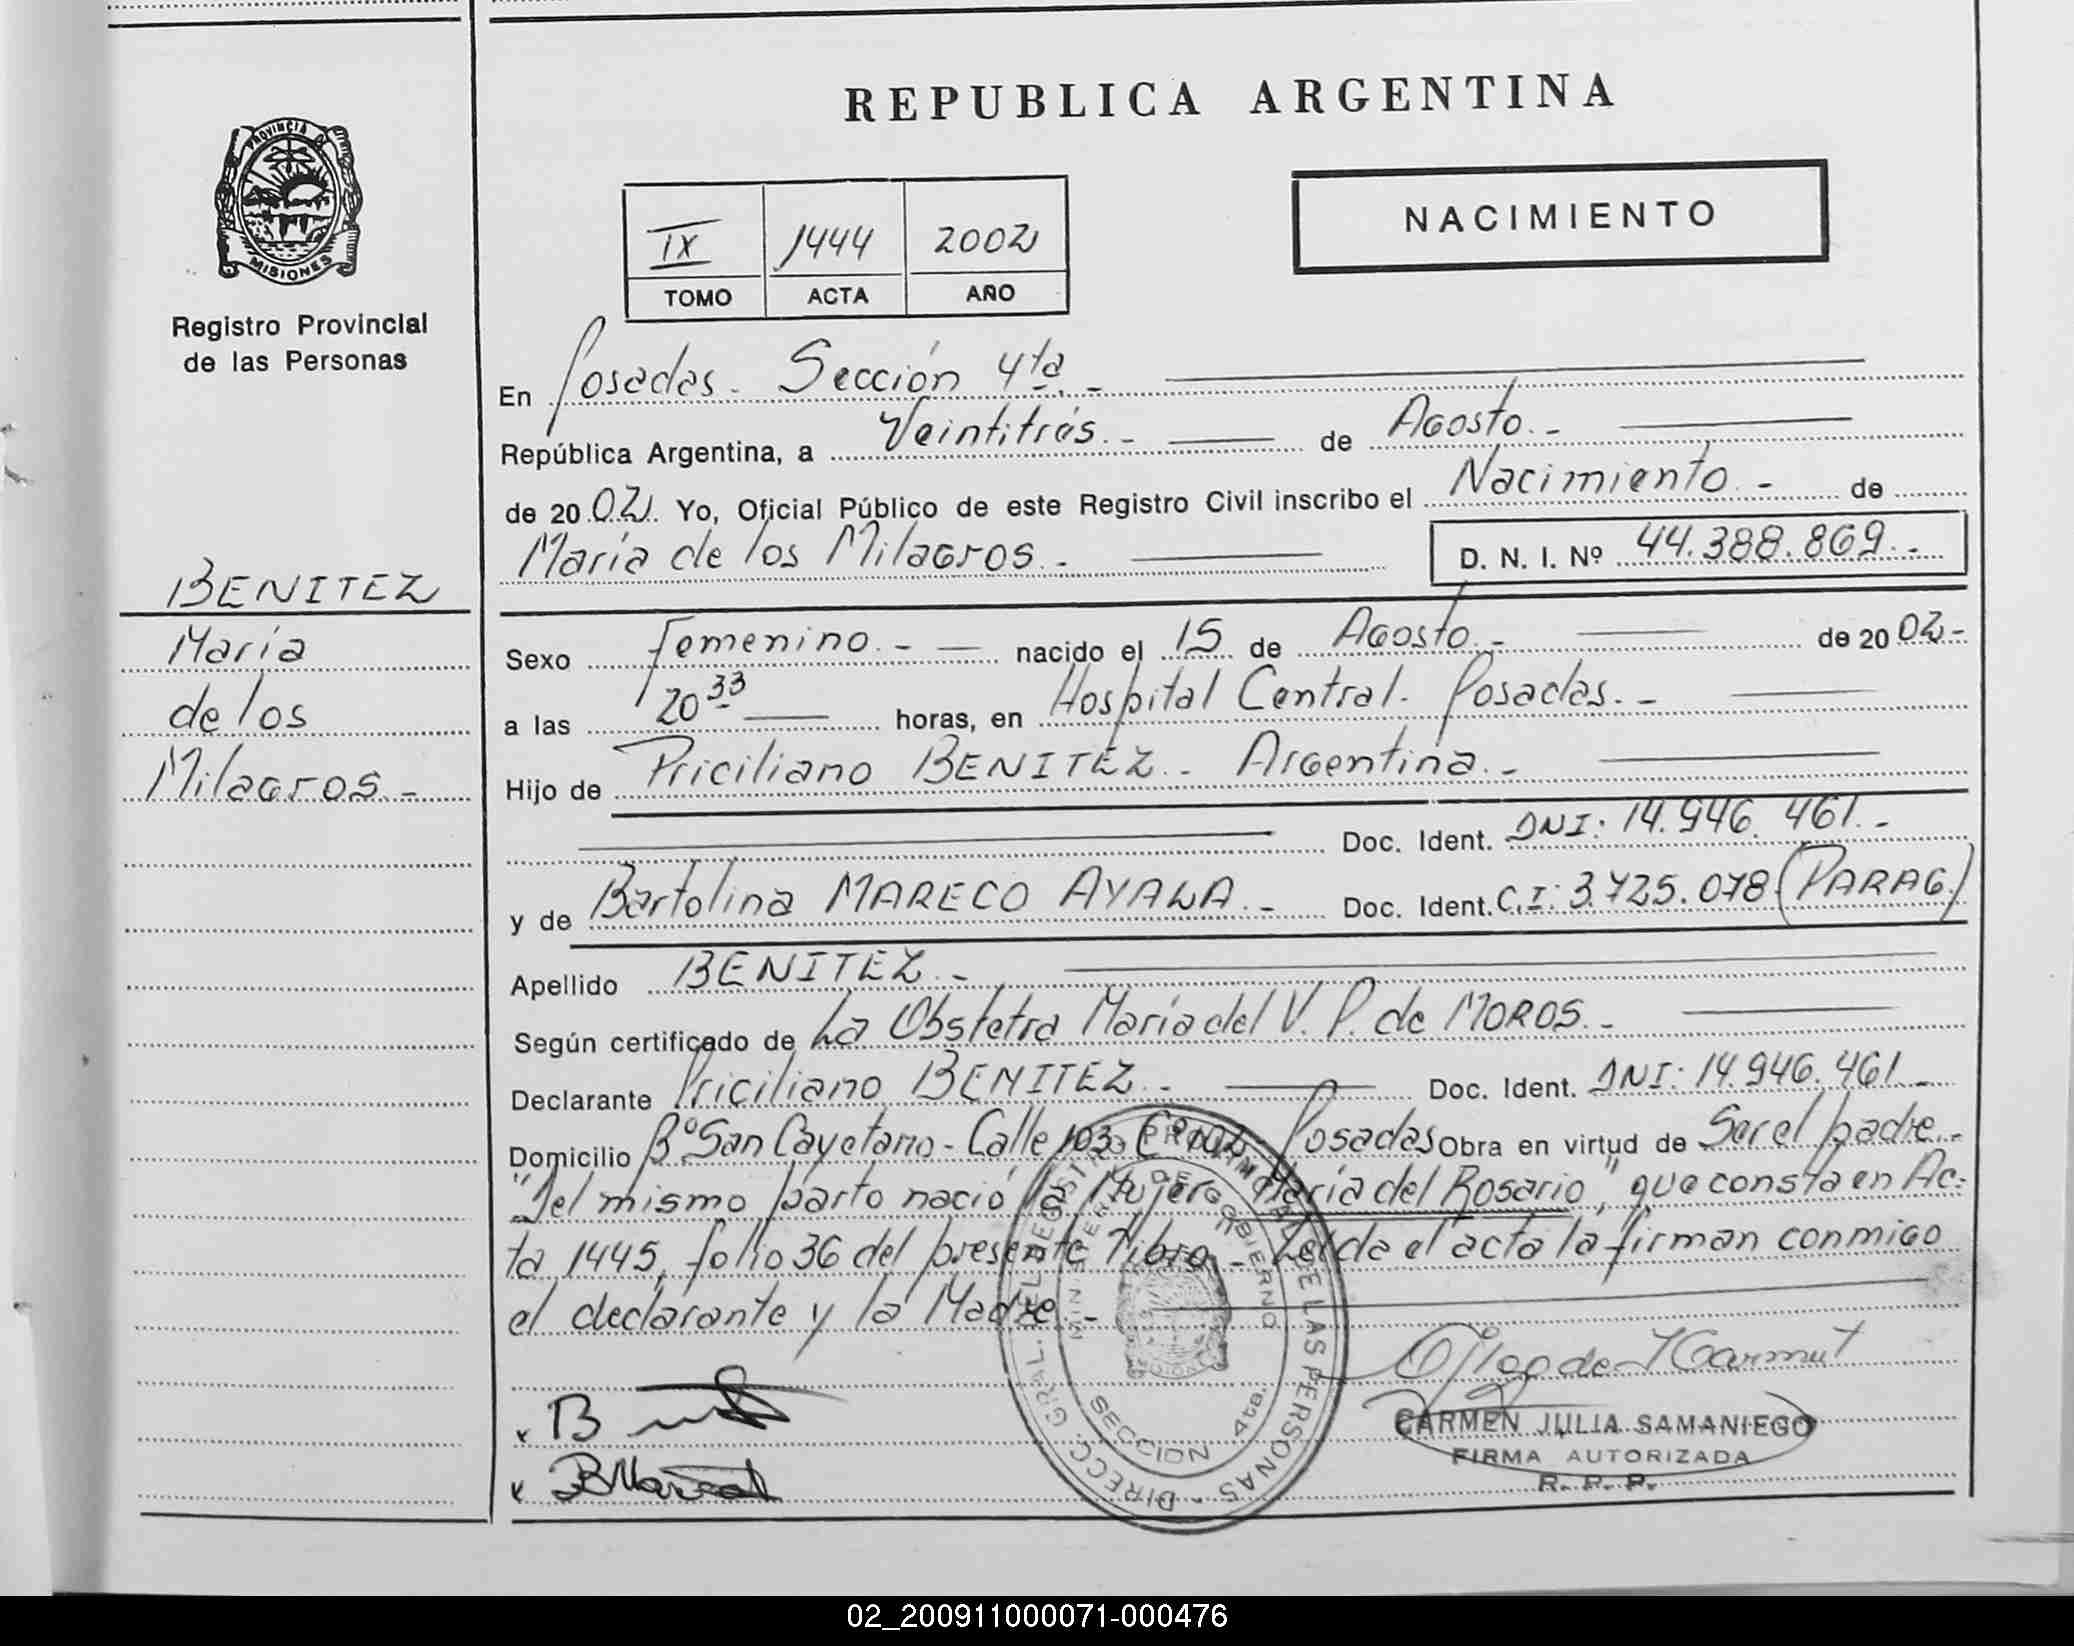 REPUBLICA ARGENTINA
PROVINCIA DE
MISIONES
Registro Provincial
de las Personas
NACIMIENTO
IX 1444 2002
TOMO ACTA AÑO
En Posadas. Sección 4ta.-
República Argentina, a Veintitrés.- de Agosto.-
de 2002. Yo, Oficial Público de este Registro Civil inscribo el Nacimiento.- de
María de los Milagros.- D. N. I. Nº 44.388.869.-
BENITEZ
María
de los
Milagros.-
Sexo Femenino.- nacido el 15 de Agosto.- de 2002.-
a las 20 33 horas, en Hospital Central. Posadas.-
Hijo de Priciliano BENITEZ.- Argentina.-
Doc. Ident. DNI: 14.946.461.-
y de Bartolina MARECO AYALA.- Doc. Ident. C.I: 3.725.078 (PARAG.)
Apellido BENITEZ.-
Según certificado de La Obstetra María del V. P. de MOROS.-
Declarante Priciliano BENITEZ.- Doc. Ident. DNI: 14.946.461.-
Domicilio Bº San Cayetano - Calle 103 Posadas Obra en virtud de Ser el padre.-
"Del mismo parto nació la Mujer: María del Rosario", que consta en Ac-
ta 1445, folio 36 del presente libro.- Leída el acta la firman conmigo
el declarante y la Madre.-
DIRECC. GRAL. DEL REGISTRO PROVINCIAL DE LAS PERSONAS -
MINISTERIO DE GOBIERNO
SECCION 4ta.
CARMEN JULIA SAMANIEGO
FIRMA AUTORIZADA
R. P. P.
02_200911000071-000476